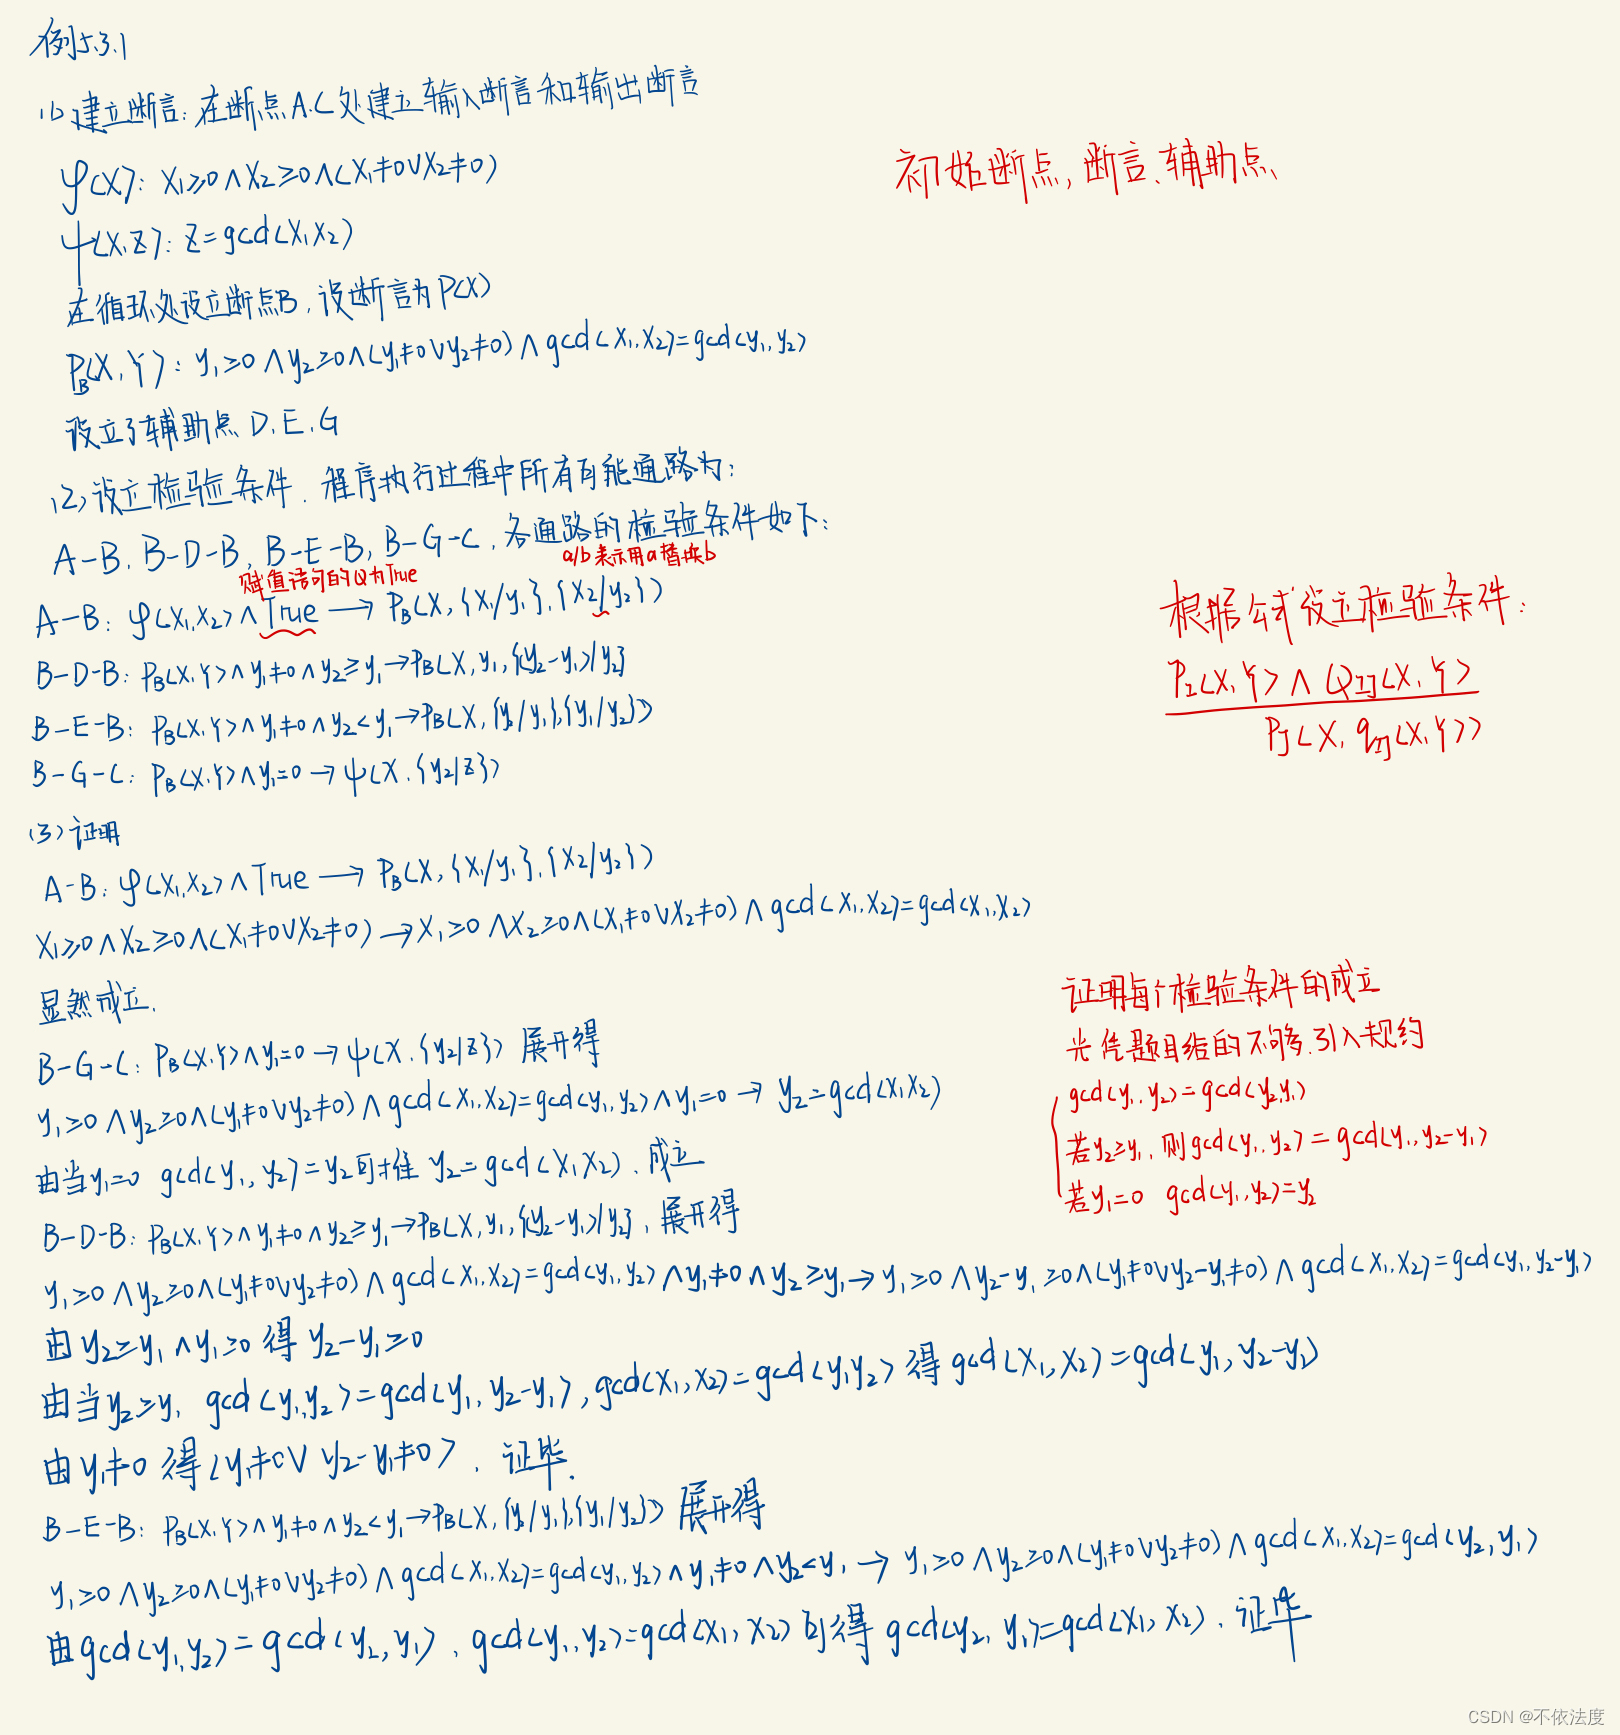 例5.3.1
(1) 建立断言: 在断点A.C处建立输入断言和输出断言
φ(X): X₁≥0∧X₂≥0∧(X₁≠0∨X₂≠0)
初始断点, 断言、辅助点、
ψ(X,Z): Z=gcd(X₁X₂)
在循环处设立断点B, 设断言为P(X)
P_B(X,Y): y₁≥0∧y₂≥0∧(y₁≠0∨y₂≠0)∧gcd(X₁,X₂)=gcd(y₁,y₂)
设立了辅助点 D.E.G
(2) 设立检验条件. 程序执行过程中所有可能通路为:
A-B. B-D-B, B-E-B, B-G-C. 各通路的检验条件如下:
赋值语句的Q为True
a/b表示用a替换b
A-B: φ(X₁,X₂)∧True → P_B(X,{X₁/y₁},{X₂/y₂})
B-D-B: P_B(X,Y)∧y₁≠0∧y₂≥y₁→P_B(X,y₁,{(y₂-y₁)/y₂}
B-E-B: P_B(X,Y)∧y₁≠0∧y₂<y₁→P_B(X,{y₂/y₁},{y₁/y₂})
B-G-C: P_B(X,Y)∧y₁=0→ψ(X,{y₂/Z})
根据公式设立检验条件:
P_I(X,Y)∧Q_IJ(X,Y)
P_J(X, q_IJ(X,Y))
(3) 证明
A-B: φ(X₁,X₂)∧True → P_B(X,{X₁/y₁},{X₂/y₂})
X₁≥0∧X₂≥0∧(X₁≠0∨X₂≠0)→X₁≥0∧X₂≥0∧(X₁≠0∨X₂≠0)∧gcd(X₁,X₂)=gcd(X₁,X₂)
显然成立.
B-G-C: P_B(X,Y)∧y₁=0→ψ(X,{y₂/Z}) 展开得
y₁≥0∧y₂≥0∧(y₁≠0∨y₂≠0)∧gcd(X₁,X₂)=gcd(y₁,y₂)∧y₁=0→y₂=gcd(X₁X₂)
由当y₁=0 gcd(y₁,y₂)=y₂可推 y₂=gcd(X₁X₂). 成立
证明每个检验条件的成立
光凭题目给的不够.引入规约
gcd(y₁,y₂)=gcd(y₂,y₁)
若y₂≥y₁, 则gcd(y₁,y₂)=gcd(y₁,y₂-y₁)
若y₁=0 gcd(y₁,y₂)=y₂
B-D-B: P_B(X,Y)∧y₁≠0∧y₂≥y₁→P_B(X,y₁,{(y₂-y₁)/y₂}, 展开得
y₁≥0∧y₂≥0∧(y₁≠0∨y₂≠0)∧gcd(X₁,X₂)=gcd(y₁,y₂)∧y₁≠0∧y₂≥y₁→y₁≥0∧y₂-y₁≥0∧(y₁≠0∨y₂-y₁≠0)∧gcd(X₁,X₂)=gcd(y₁,y₂-y₁)
由y₂≥y₁∧y₁≥0 得 y₂-y₁≥0
由当y₂≥y₁ gcd(y₁,y₂)=gcd(y₁,y₂-y₁), gcd(X₁,X₂)=gcd(y₁y₂) 得 gcd(X₁,X₂)=gcd(y₁,y₂-y₁)
由y₁≠0 得(y₁≠0∨y₂-y₁≠0). 证毕.
B-E-B: P_B(X,Y)∧y₁≠0∧y₂<y₁→P_B(X,{y₂/y₁},{y₁/y₂}) 展开得
y₁≥0∧y₂≥0∧(y₁≠0∨y₂≠0)∧gcd(X₁,X₂)=gcd(y₁,y₂)∧y₁≠0∧y₂<y₁→y₁≥0∧y₂≥0∧(y₁≠0∨y₂≠0)∧gcd(X₁,X₂)=gcd(y₂,y₁)
由gcd(y₁,y₂)=gcd(y₂,y₁), gcd(y₁,y₂)=gcd(X₁,X₂)可得 gcd(y₂,y₁)=gcd(X₁,X₂). 证毕
CSDN @不依法度